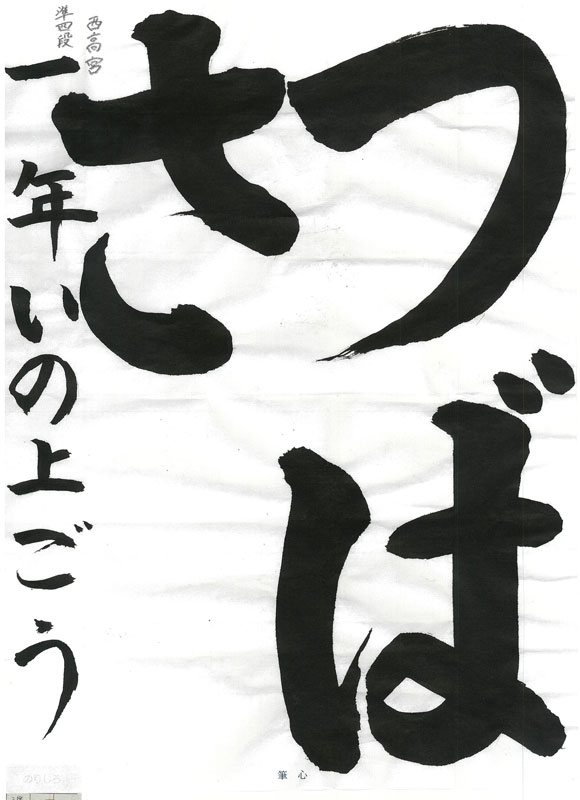 つば
さ
西高宮
準四段
一年いの上ごう
筆心
のりしろ